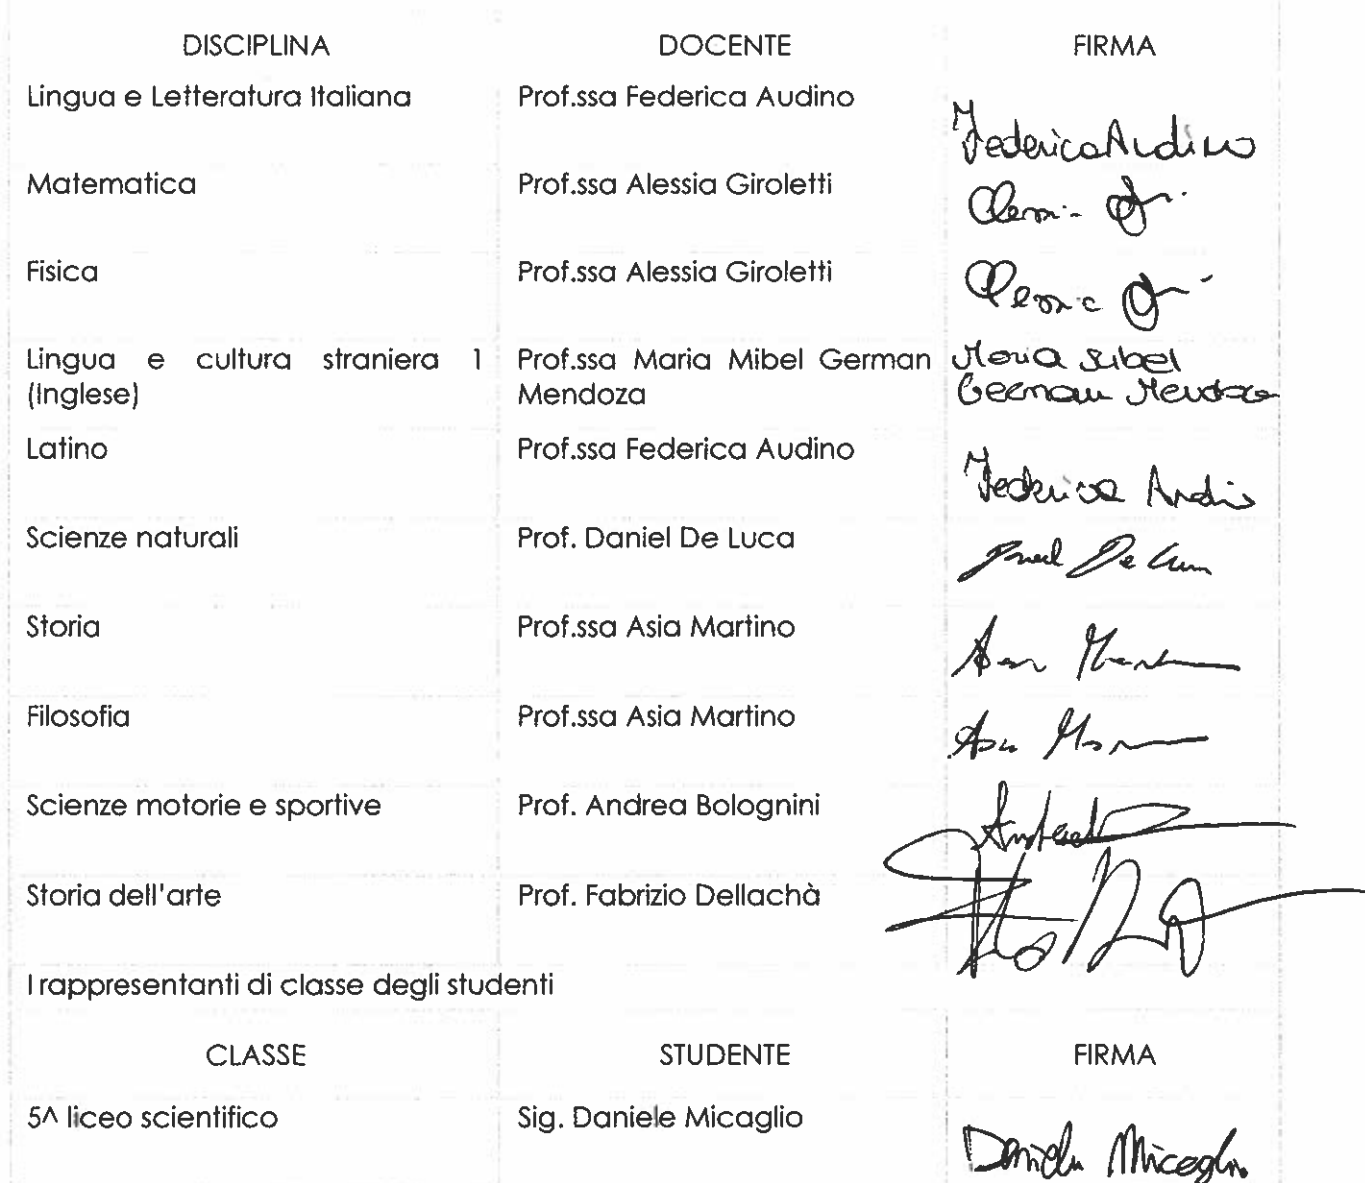 DISCIPLINA DOCENTE FIRMA
Lingua e Letteratura Italiana Prof.ssa Federica Audino Federica Audino
Matematica Prof.ssa Alessia Giroletti
Fisica Prof.ssa Alessia Giroletti
Lingua e cultura straniera 1 Prof.ssa Maria Mibel German Maria Mibel
(Inglese) Mendoza German Mendoza
Latino Prof.ssa Federica Audino Federica
Scienze naturali Prof. Daniel De Luca De
Storia Prof.ssa Asia Martino
Filosofia Prof.ssa Asia Martino
Scienze motorie e sportive Prof. Andrea Bolognini
Storia dell'arte Prof. Fabrizio Dellachà
I rappresentanti di classe degli studenti
CLASSE STUDENTE FIRMA
5^ liceo scientifico Sig. Daniele Micaglio